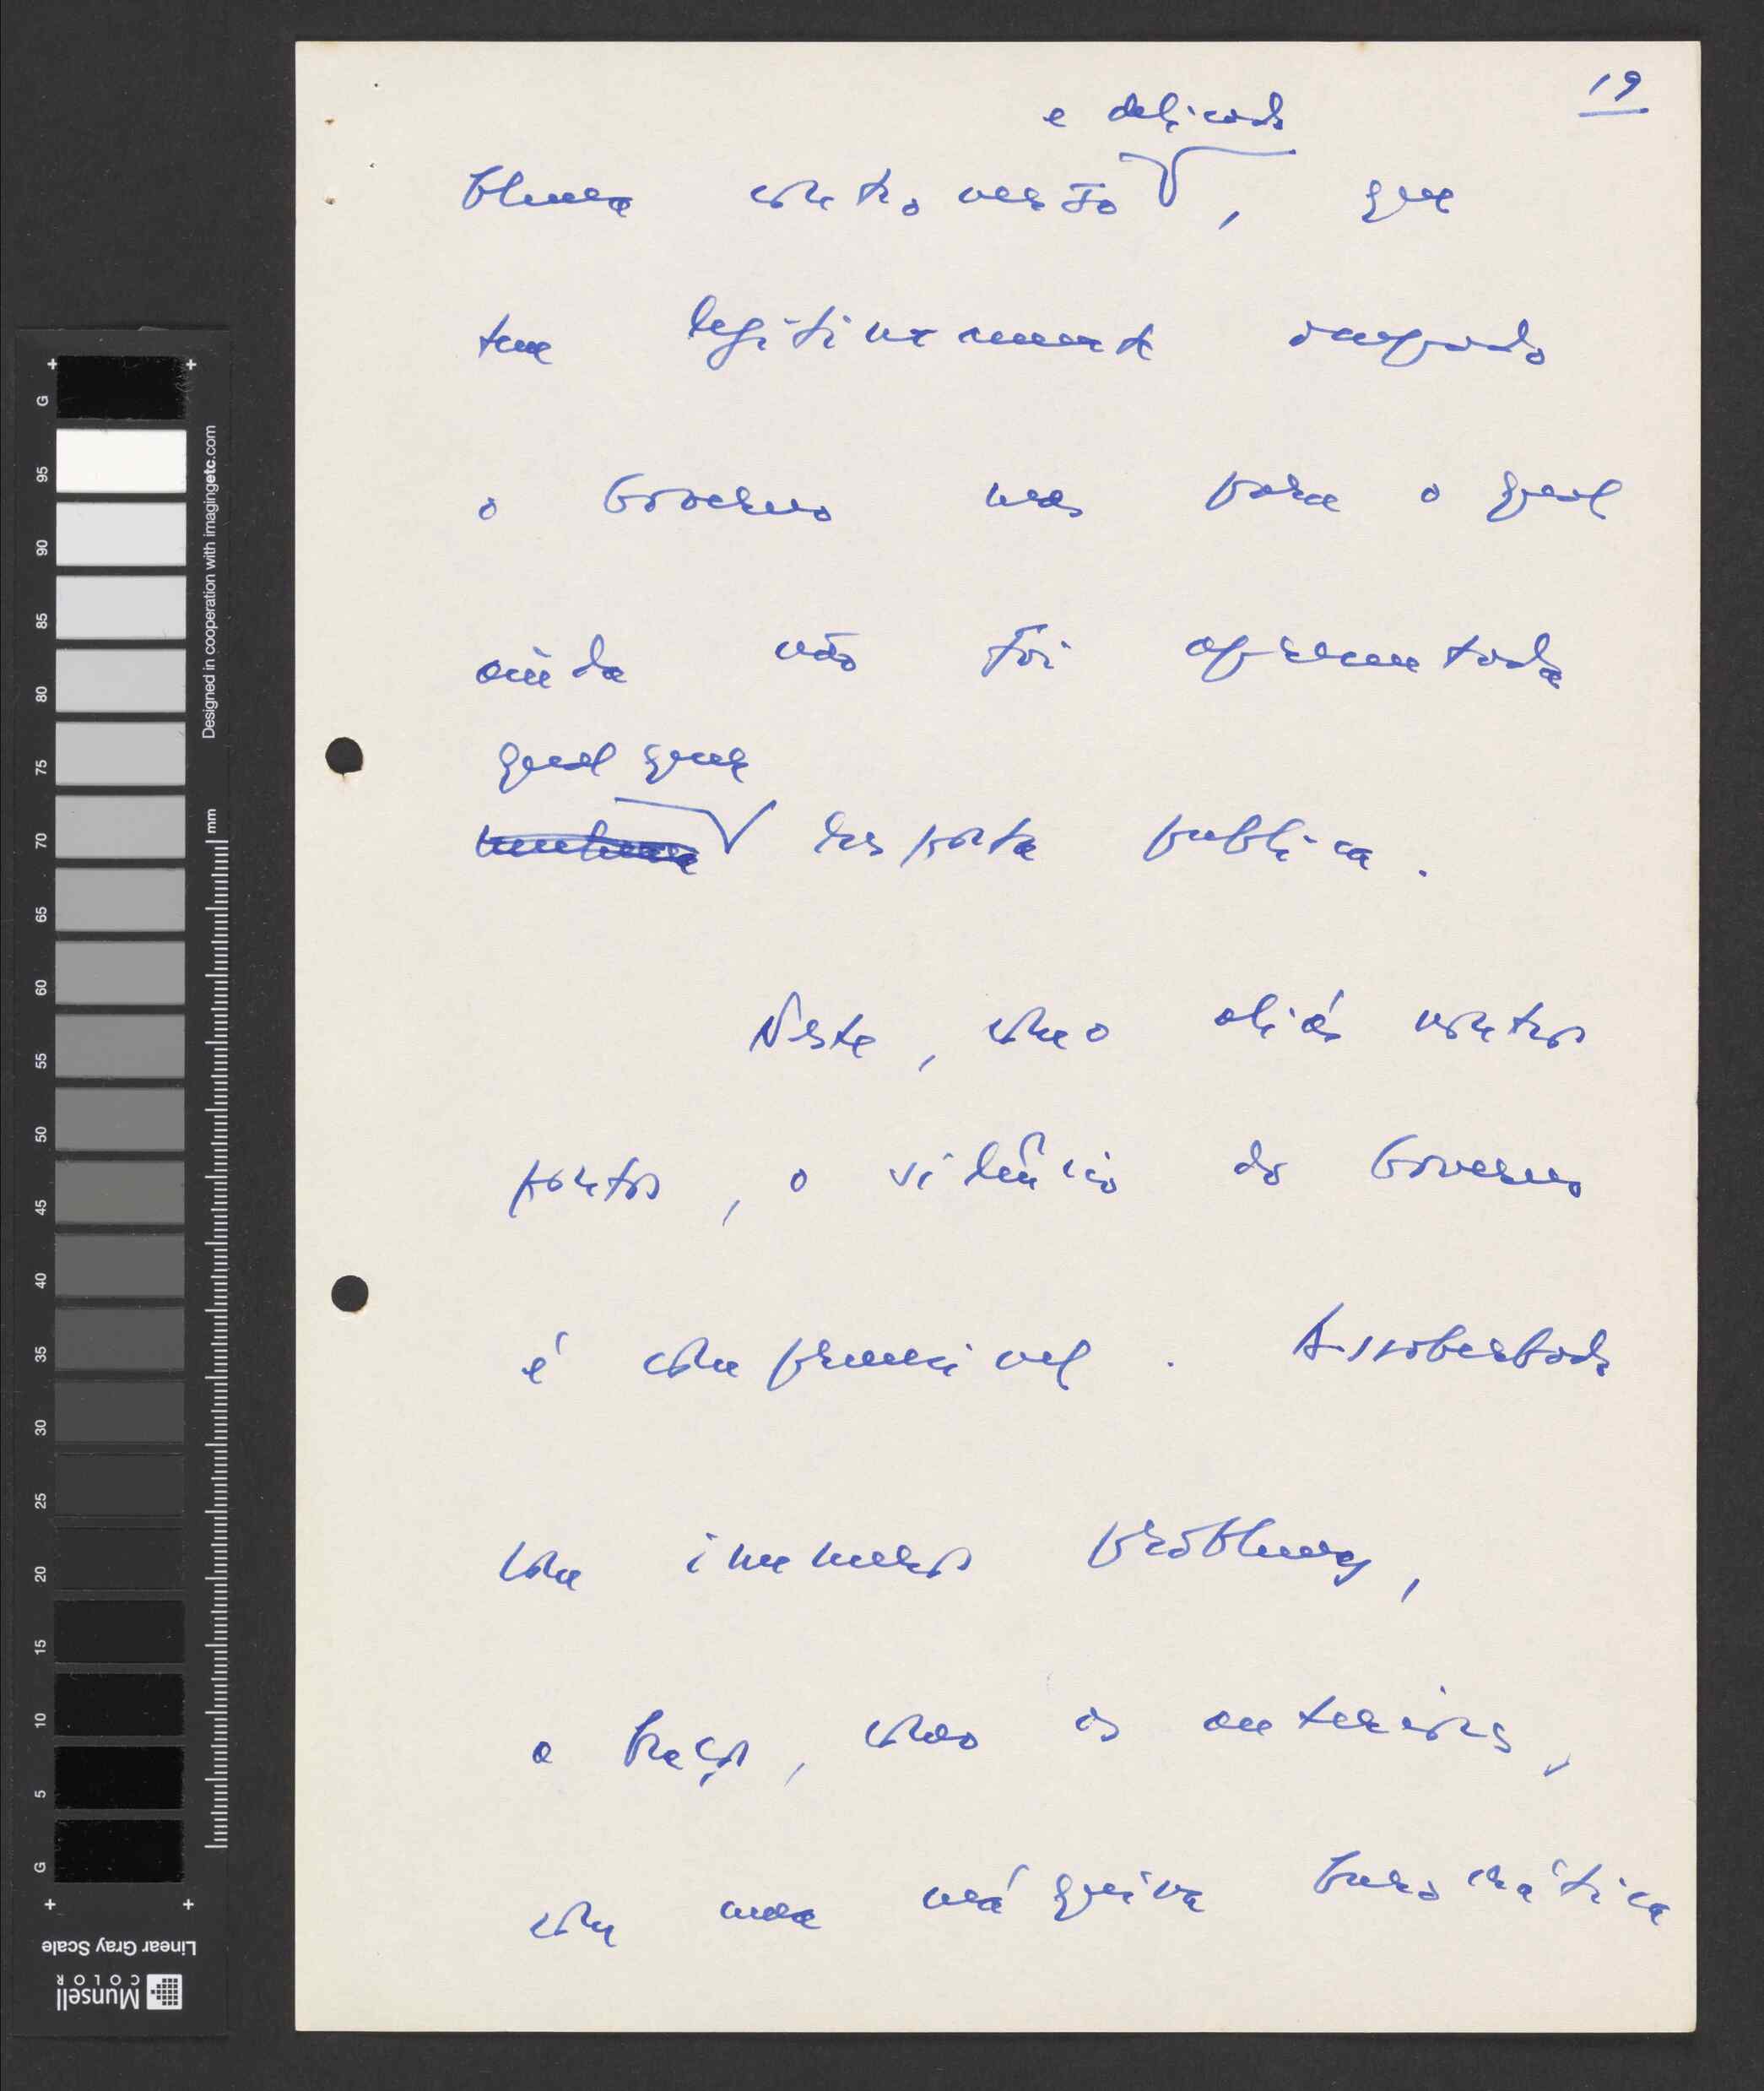 19
e delicado
blema controverso, que
tem legitimamente ocupado
o Governo mas para o qual
ainda não foi apresentada
qualquer
nenhuma resposta publica.
Neste, como aliás noutros
pontos, o silêncio do Governo
é compreensivel. Assoberbado
com inumeros problemas,
a braços, como os anteriores,
com uma máquina burocrática
G
95
90
85
80
75
70
65
60
55
50
45
40
35
30
25
20
15
10
5
G
Designed in cooperation with imagingetc.com
70 mm
Linear Gray Scale
Munsell
COLOR